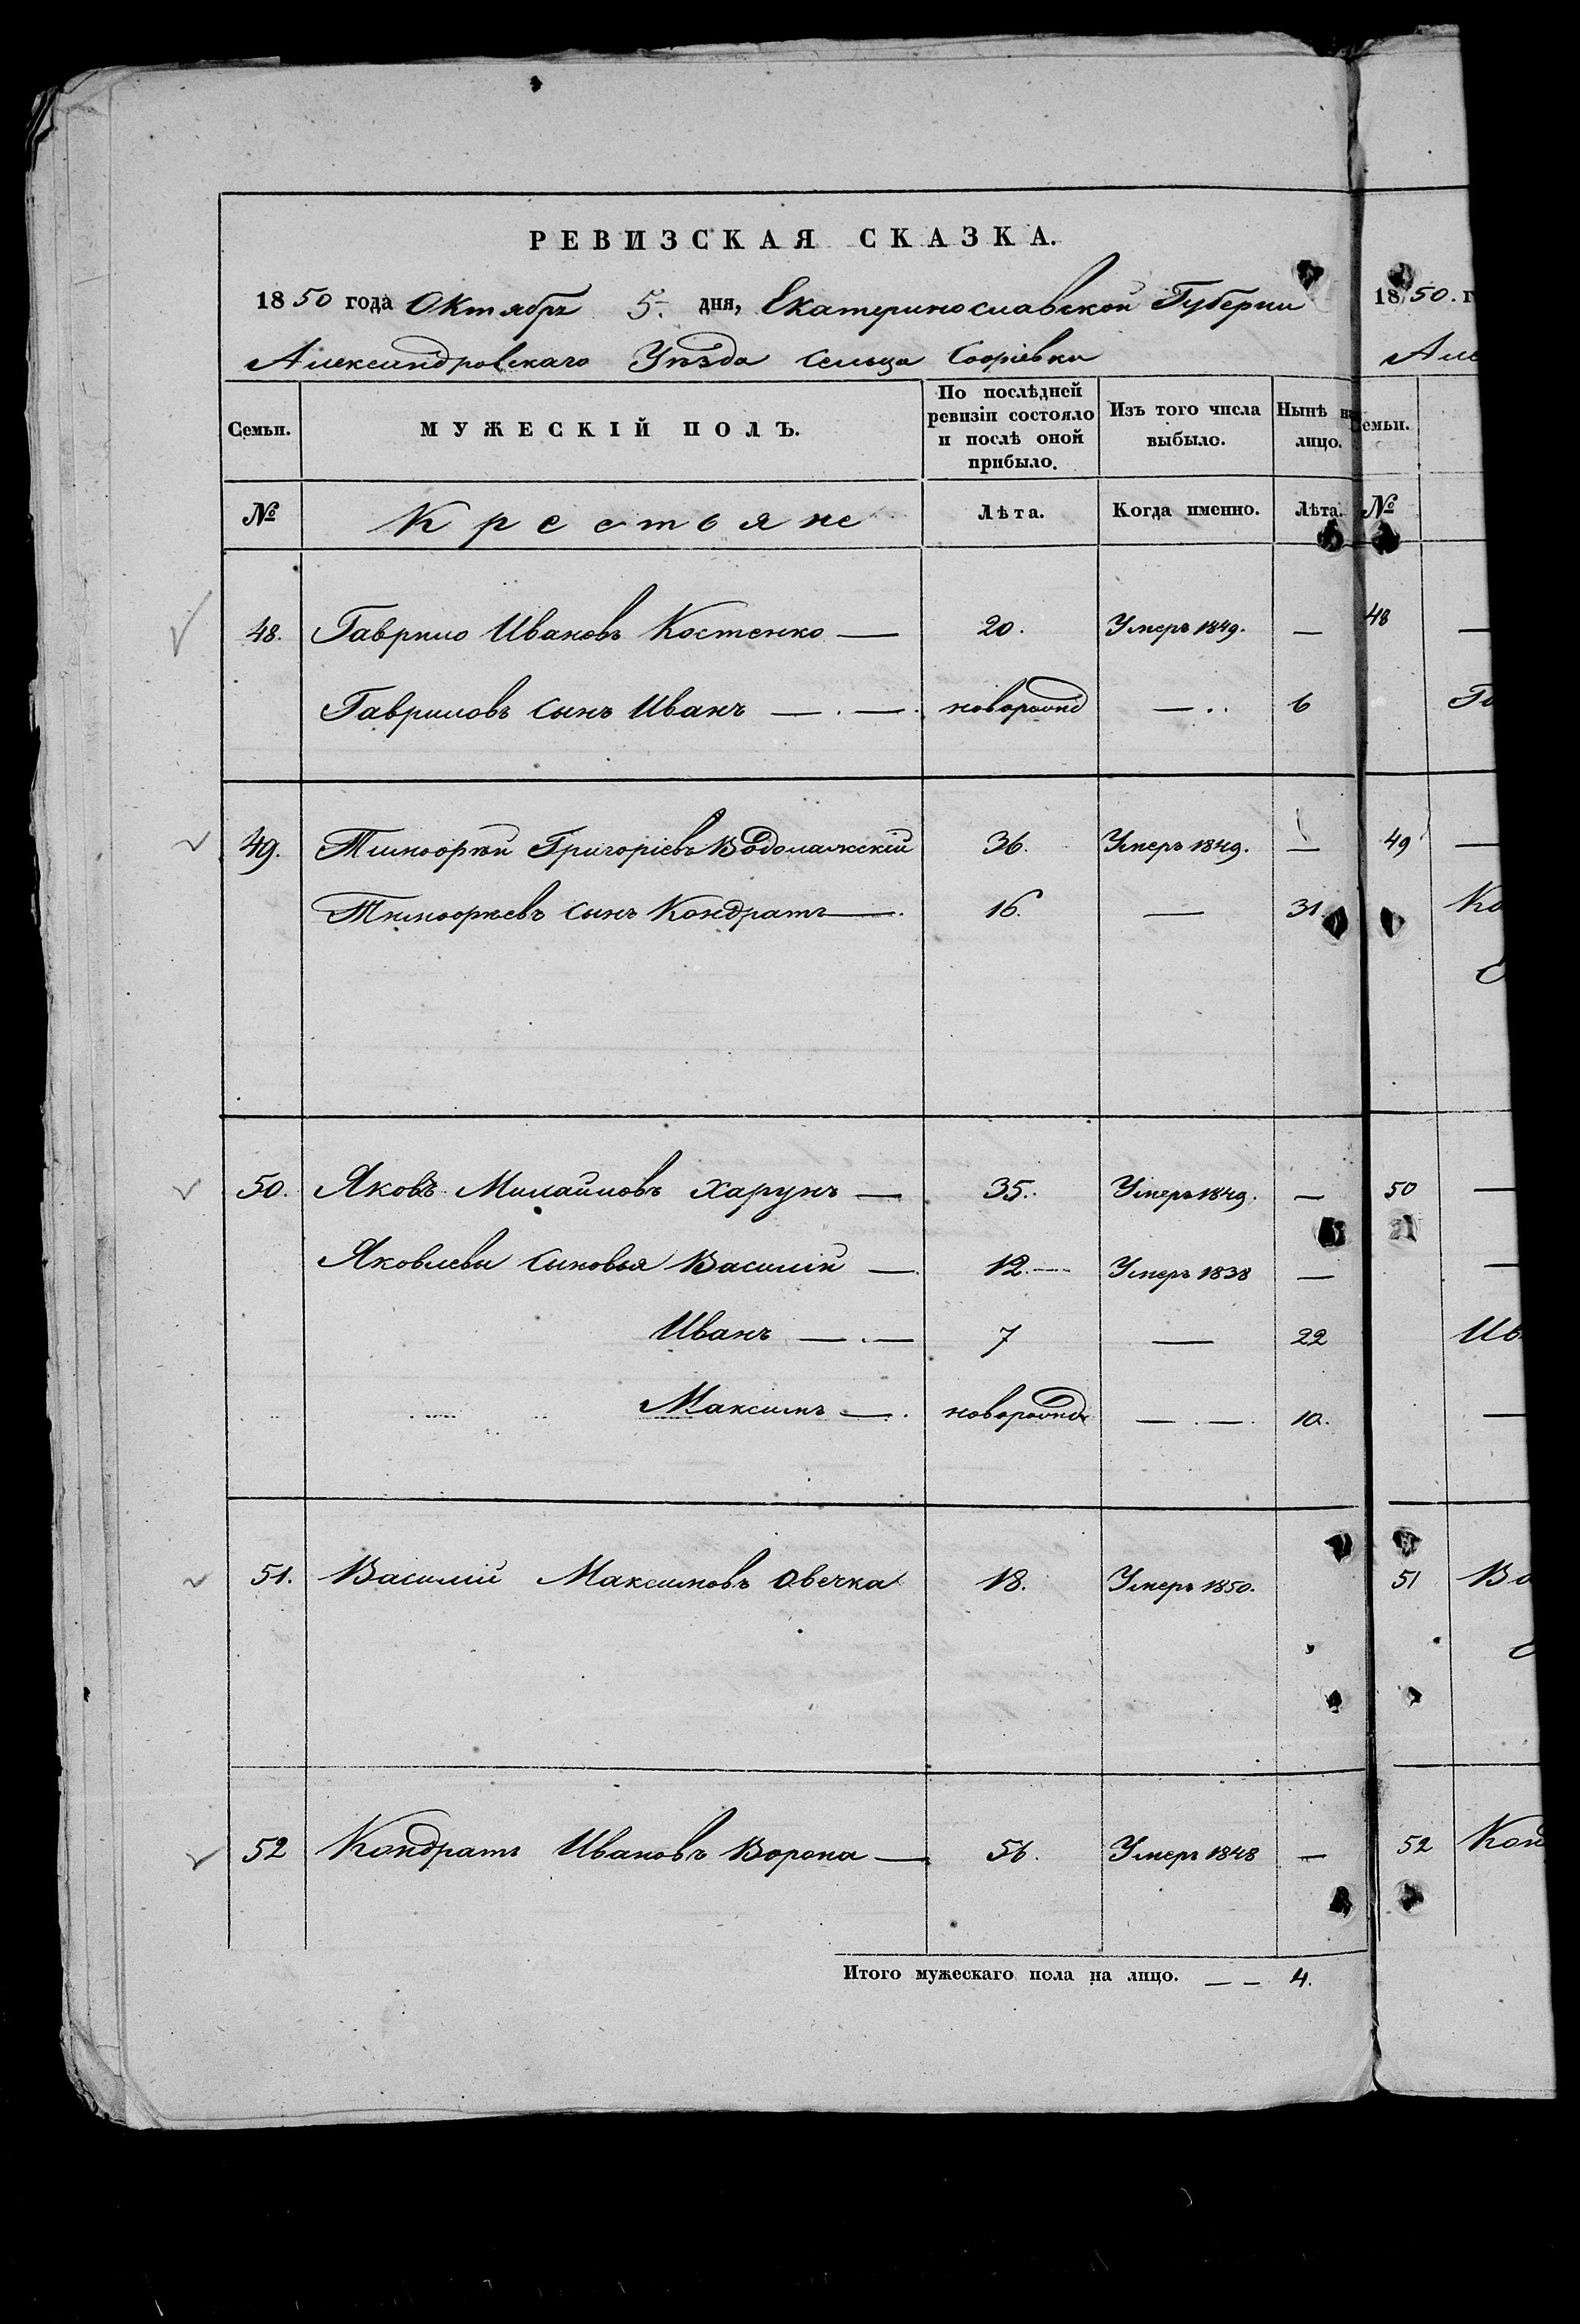 РЕВИЗСКАЯ СКАЗКА.
1850 года Октября 5. дня, Екатеринославской Губерни
Александровскаго Уѣзда Сельца Софіевки
Семьи. МУЖЕСКІЙ ПОЛЪ. По послѣдней ревизіи состояло и послѣ оной прибыло. Изъ того числа выбыло. Нынѣ на лицо.
№ Крестьяне Лѣта. Когда именно. Лѣта.
48. Гаврило Ивановъ Костенко — 20. Умеръ 1849. —
Гавриловъ сынъ Иванъ — . — . новорожд — . . 6
49. Тимофѣй Григоріевъ Водолажскій 36. Умеръ 1849. —
Тимофѣевъ сынъ Кондратъ — . 16. — 31.
50. Яковъ Михайловъ Харунъ — 35. Умеръ 1849. —
Яковлевы сыновья Василій — 12. — Умеръ 1838 —
Иванъ — . — 7 — 22
Максимъ — . новорожд — . — . 10.
51. Василій Максимовъ Овечка 18. Умеръ 1850.
52 Кондратъ Ивановъ Ворона — 56. Умеръ 1848 —
Итого мужескаго пола на лицо. — — 4.
1850. г
Але
Семьи.
№
48
Га
49 —
Ко
50 —
—
Ив
—
51 Ва
52 Конд